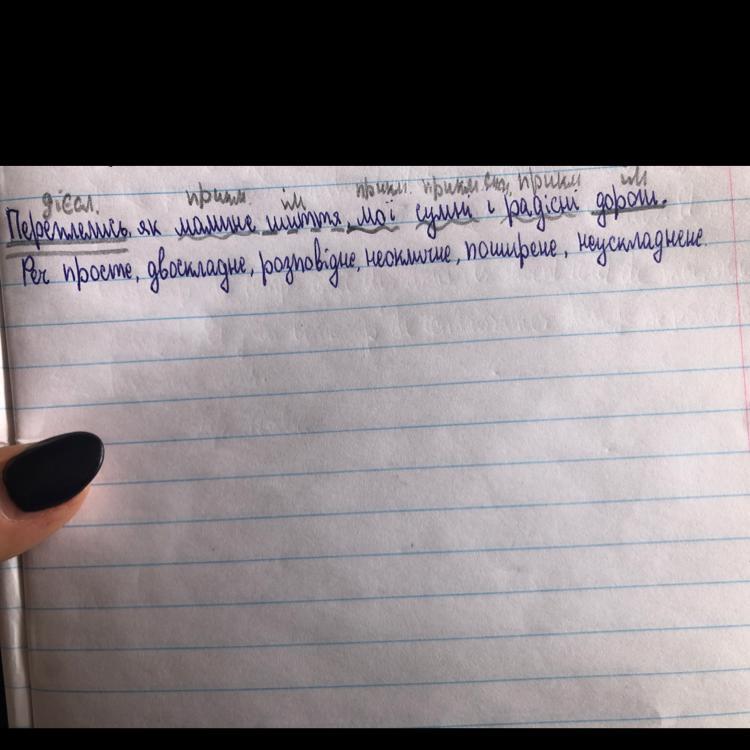 дієсл. прикм. ім прикм. прикм. спол. прикм ім
Переплелись, як малине шиття, мої сумні і радісні дороги.
Реч просте, двоскладне, розповідне, неокличне, поширене, неускладнене.